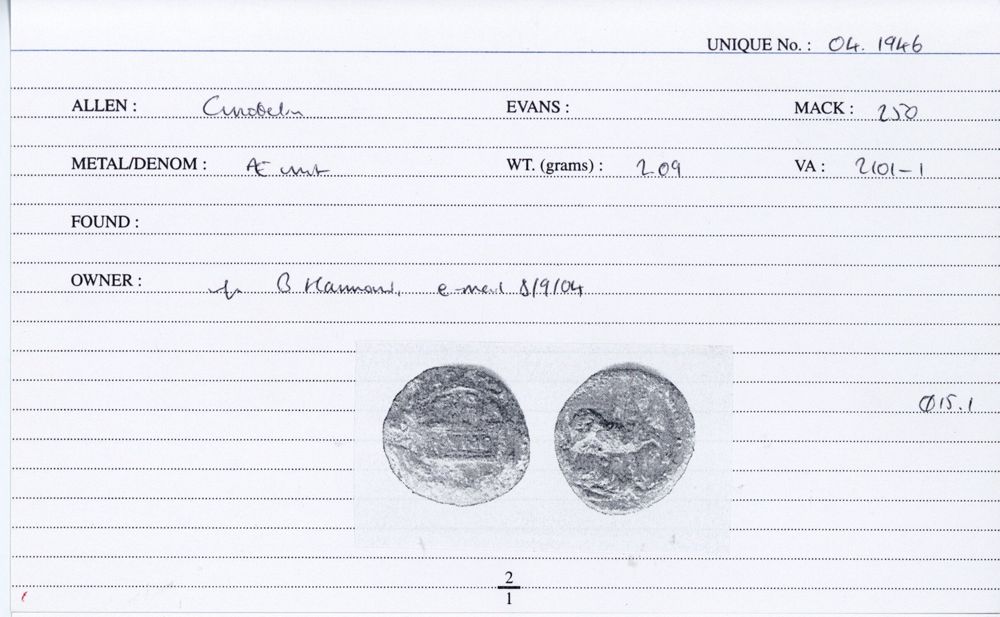 UNIQUE No. : 04. 1946
ALLEN : Cunobelin EVANS : MACK : 250
METAL/DENOM : Æ unit WT. (grams) : 2.09 VA : 2101-1
FOUND :
OWNER : B Hammond, e-mail 8/9/04
Ø15.1
2
1